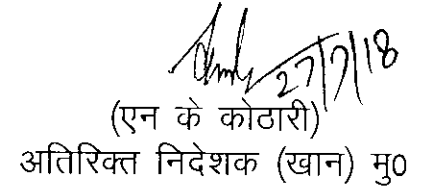 27/7/18
(एन के कोठारी)
अतिरिक्त निदेशक (खान) मु0